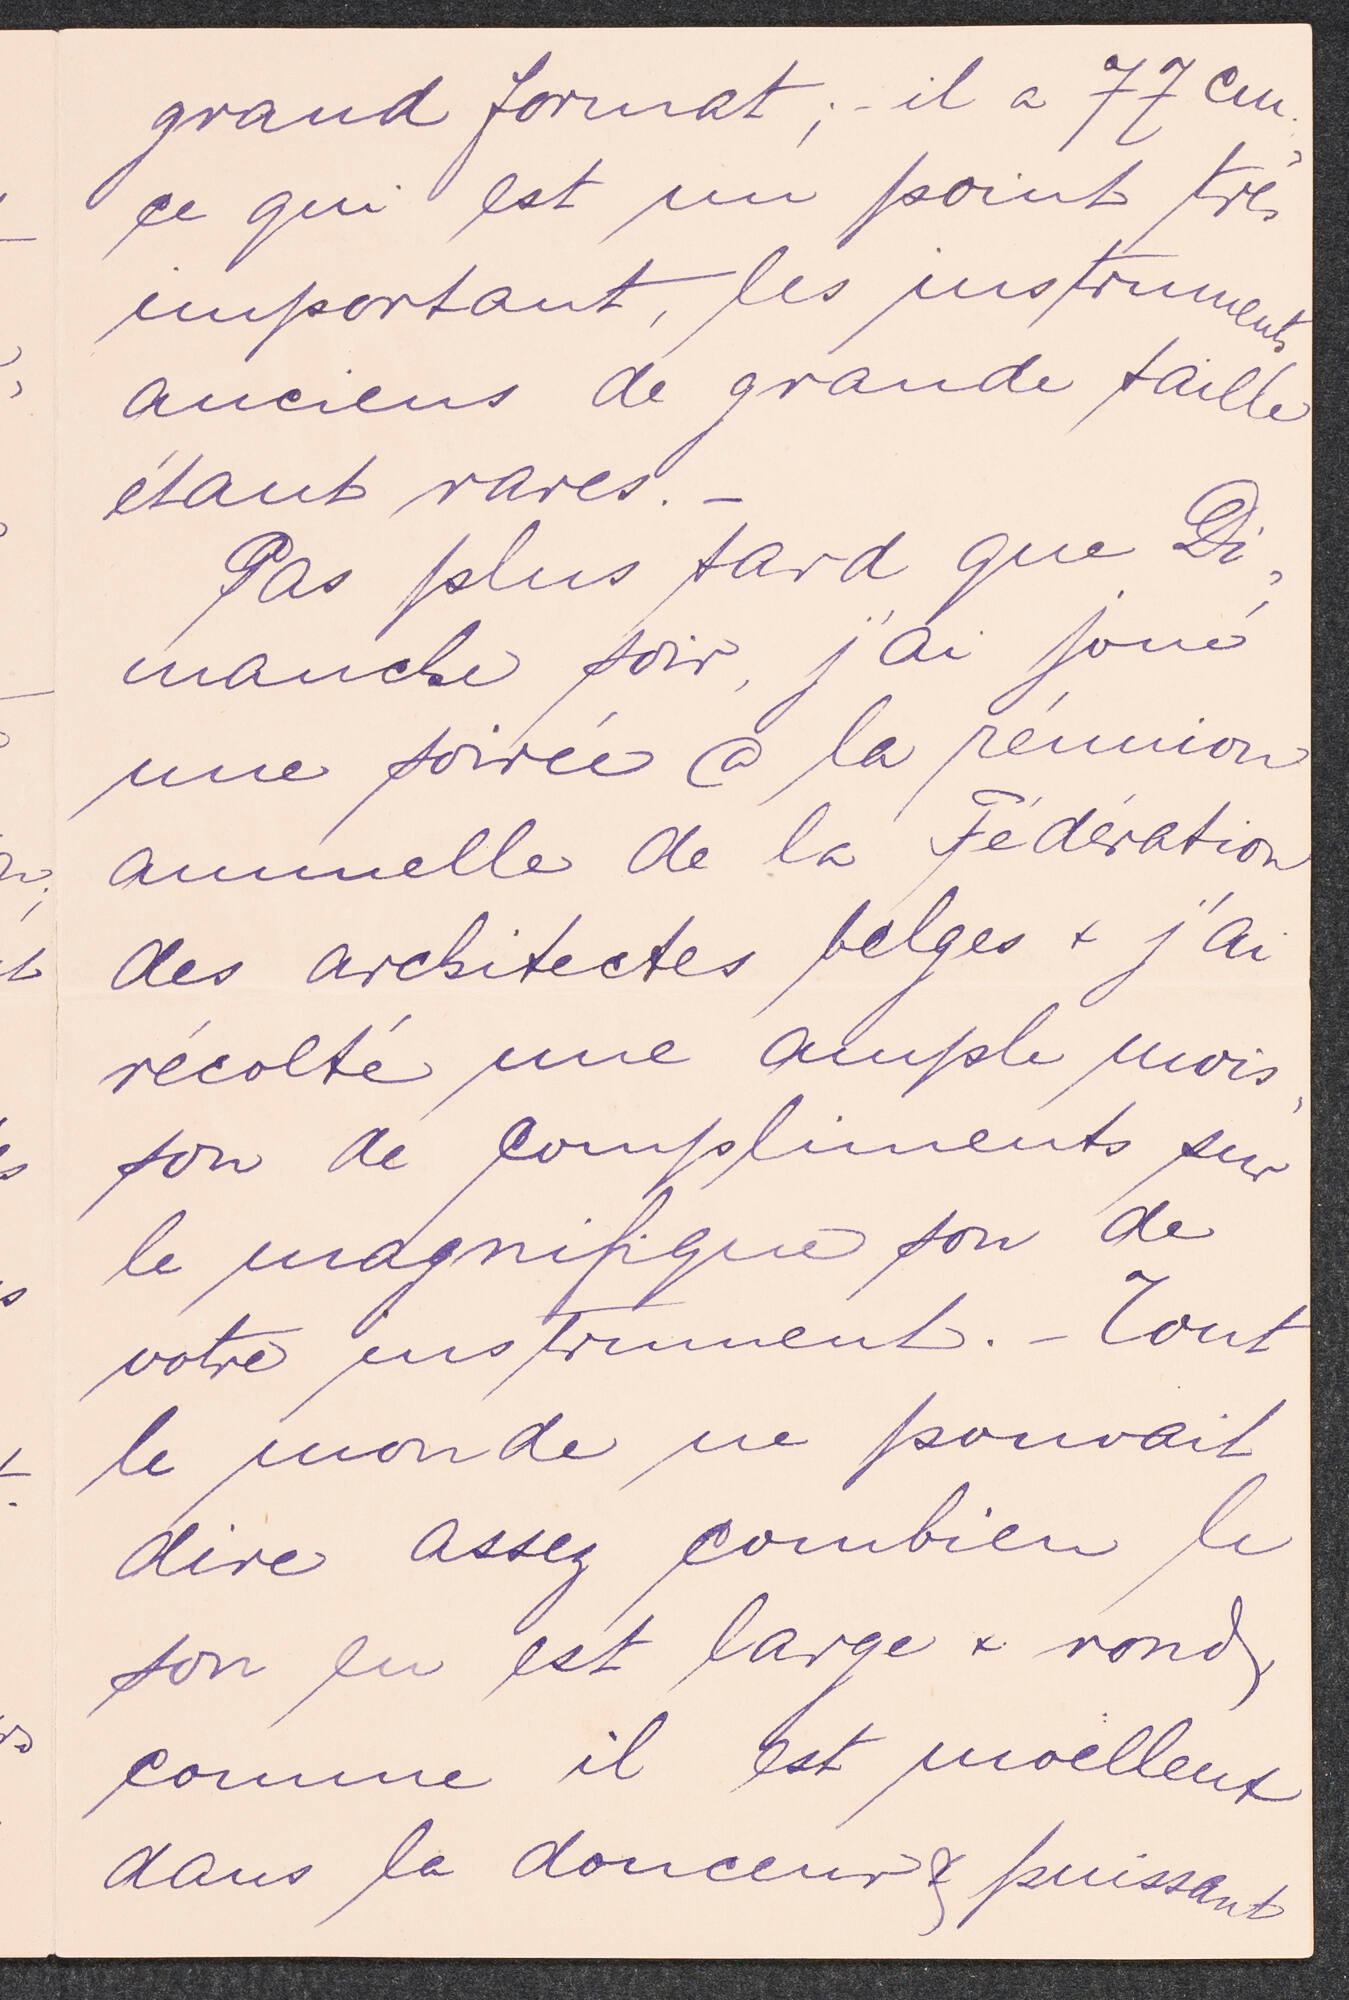 grand format ; - il a 77 cm.,
ce qui est un point très
important, les instruments
anciens de grande taille
étant rares. -
Pas plus tard que Di-
manche soir, j'ai joué
une soirée @ la réunion
annuelle de la Fédération
des architectes belges & j'ai
récolté une ample mois-
son de compliments sur
le magnifique son de
votre instrument. - Tout
le monde ne pouvait
dire assez combien le
son en est large & rond,
comme il est moëlleux
dans la douceur & puissant